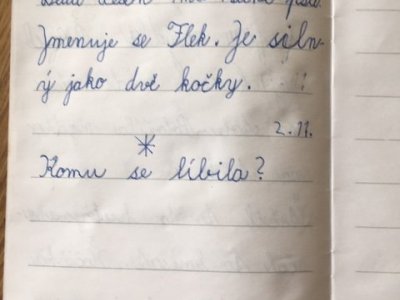 Jmenuje se Flek. Je siln-
ý jako dvě kočky.
2.11.
Komu se líbila?